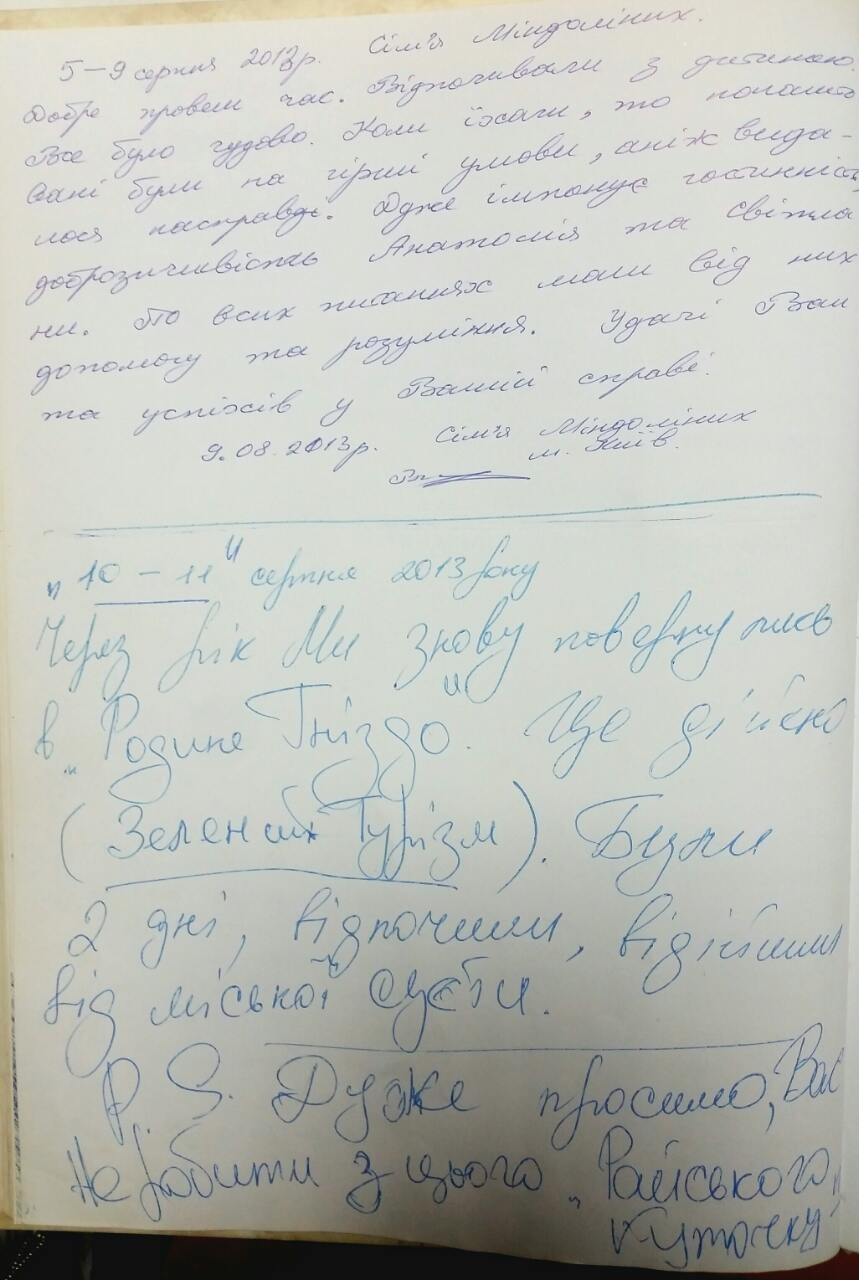 5–9 серпня 2013р. Сім'я Міндоліних.
Добре провели час. Відпочивали з дитиною.
Все було чудово. Коли їхали, то
були на гірші умови, аніж вида-
лося насправді. Дуже імпонує гостинність
доброзичливість Анатолія та Світла
ни. По всих питаннях мали від них
допомогу та розуміння. Удачі Вам
та успіхів у Вашій справі.
9.08.2013р. Сім'я Міндоліних
м. Київ.
„10 – 11" серпня 2013 року
Через рік Ми знову повернулись
в „Родине Гніздо". Це дійсно
(Зелений Турізм). Були
2 дні, відпочили, відійшли
від міської суєти.
P. S. Дуже просимо, Вас
Не робити з цього „Райського
куточку"